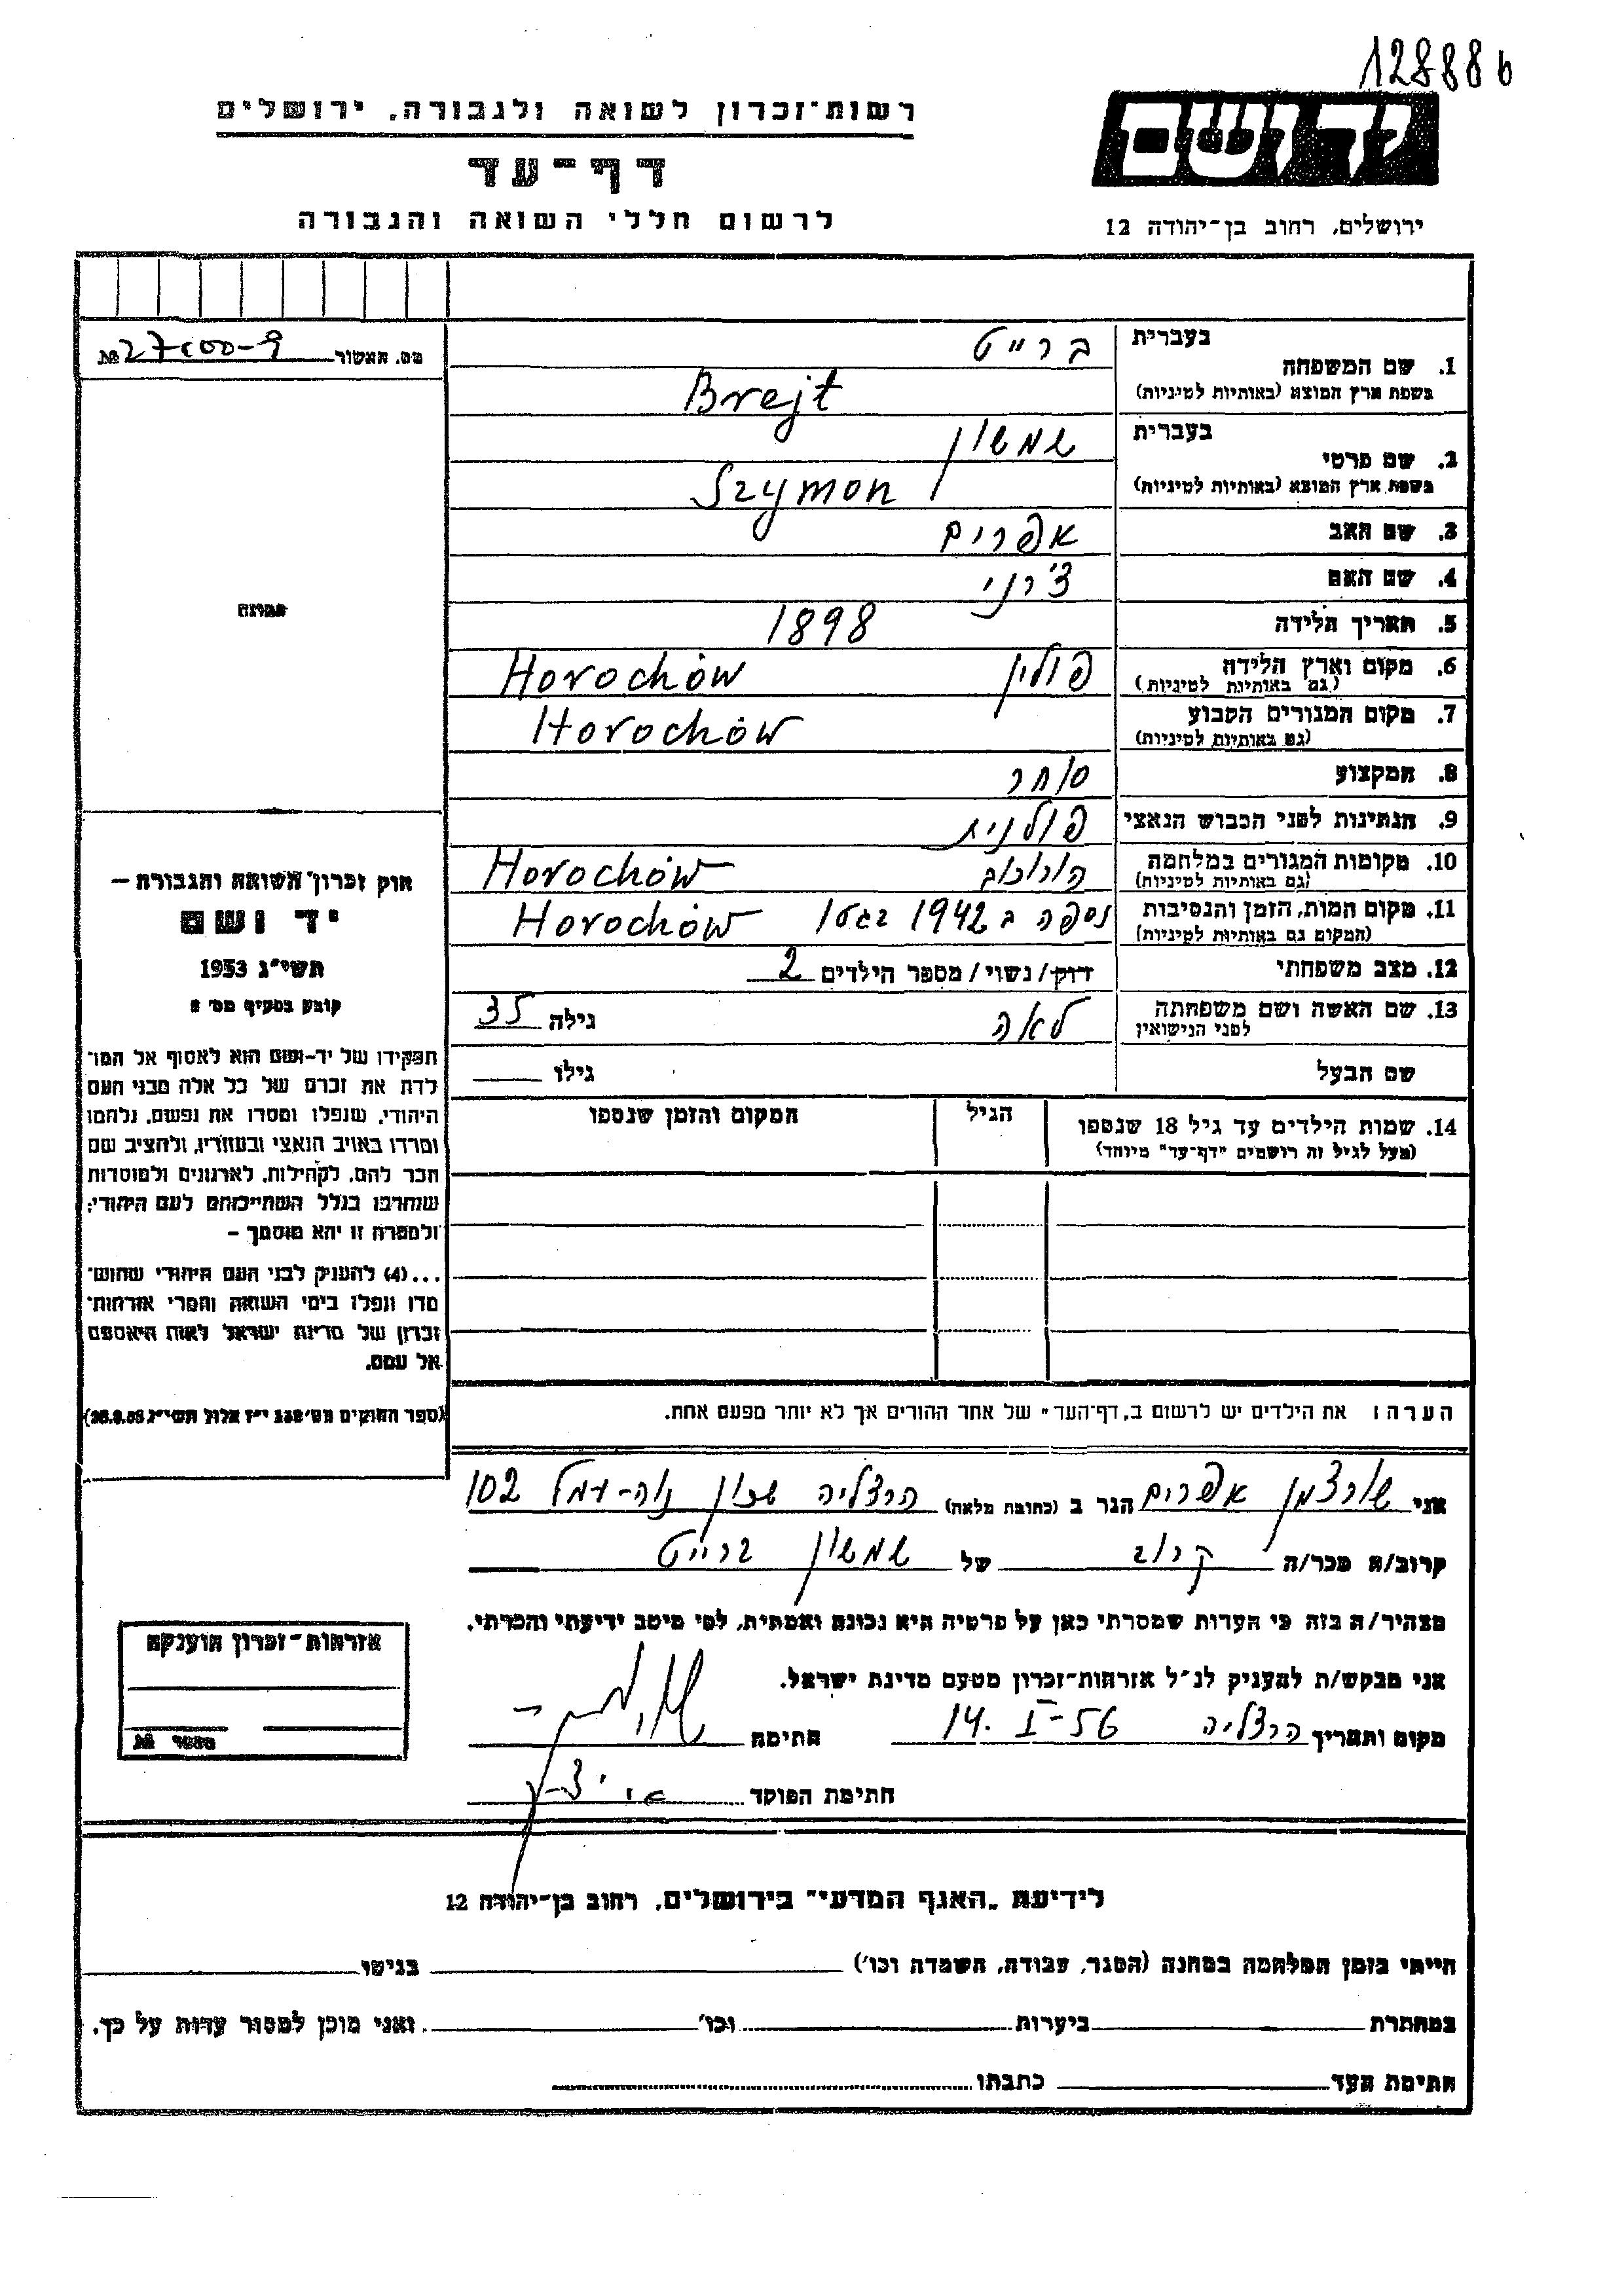 128886
רשות־זכרון לשואה ולגבורה, ירושלים
דף־עד
לרשום חללי השואה והגבורה
ידושם
ירושלים, רחוב בן־יהודה 12
מס. האשור № 27400-9
תמונה
חוק זכרון השואה והגבורה —
יד ושם
תשי״ג 1953
קובע בסעיף מס׳ 2
תפקידו של יד־ושם הוא לאסוף אל המו־
לדת את זכרם של כל אלה מבני העם
היהודי, שנפלו ומסרו את נפשם, נלחמו
ומרדו באויב הנאצי ובעוזריו, ולהציב שם
וזכר להם, לקהילות, לארגונים ולמוסדות
שנחרבו בגלל השתייכותם לעם היהודי;
ולמטרה זו יהא מוסמך —
...(4) להעניק לבני העם היהודי שהוש־
מדו ונפלו בימי השואה והמרי אזרחות־
זכרון של מדינת ישראל לאות היאספם
אל עמם.
(ספר החוקים מס׳ 132 י״ז אלול תשי״ג 28.8.53)
1. שם המשפחה
בעברית ברייט
בשפת ארץ המוצא (באותיות לטיניות) Brejt
2. שם פרטי
בעברית שמשון
בשפת ארץ המוצא (באותיות לטיניות) Szymon
3. שם האב אפרים
4. שם האם צ'רני
5. תאריך הלידה 1898
6. מקום וארץ הלידה פולין Horochów
(גם באותיות לטיניות)
7. מקום המגורים הקבוע Horochów
(גם באותיות לטיניות)
8. המקצוע סוחר
9. הנתינות לפני הכבוש הנאצי פולנית
10. מקומות המגורים במלחמה הורוכוב Horochów
(גם באותיות לטיניות)
11. מקום המות, הזמן והנסיבות נספה ב 1942 בגטו Horochów
(המקום גם באותיות לטיניות)
12. מצב משפחתי רווק/נשוי/מספר הילדים 2
13. שם האשה ושם משפחתה לאה גילה 35
לפני הנישואין
שם הבעל גילו
14. שמות הילדים עד גיל 18 שנספו הגיל המקום והזמן שנספו
(מעל לגיל זה רושמים "דף־עד" מיוחד)
הערה: את הילדים יש לרשום ב„דף־העד" של אחד ההורים אך לא יותר מפעם אחת.
אני שורצמן אפרים הגר ב (כתובת מלאה) הרצליה שכון נוה-עמל 102
קרוב/ה מכר/ה קרוב של שמשון ברייט
מצהיר/ה בזה כי העדות שמסרתי כאן על פרטיה היא נכונה ואמתית, לפי מיטב ידיעתי והכרתי.
אני מבקש/ת להעניק לנ״ל אזרחות־זכרון מטעם מדינת ישראל.
מקום ותאריך הרצליה 14. I-56 חתימה
חתימת הפוקד
אזרחות־זכרון הוענקה
מספר №
לידיעת „האגף המדעי" בירושלים, רחוב בן־יהודה 12
הייתי בזמן המלחמה במחנה (הסגר, עבודה, השמדה וכו׳) בגיטו
במחתרת ביערות וכו׳ ואני מוכן למסור עדות על כך.
חתימת העד כתבתו